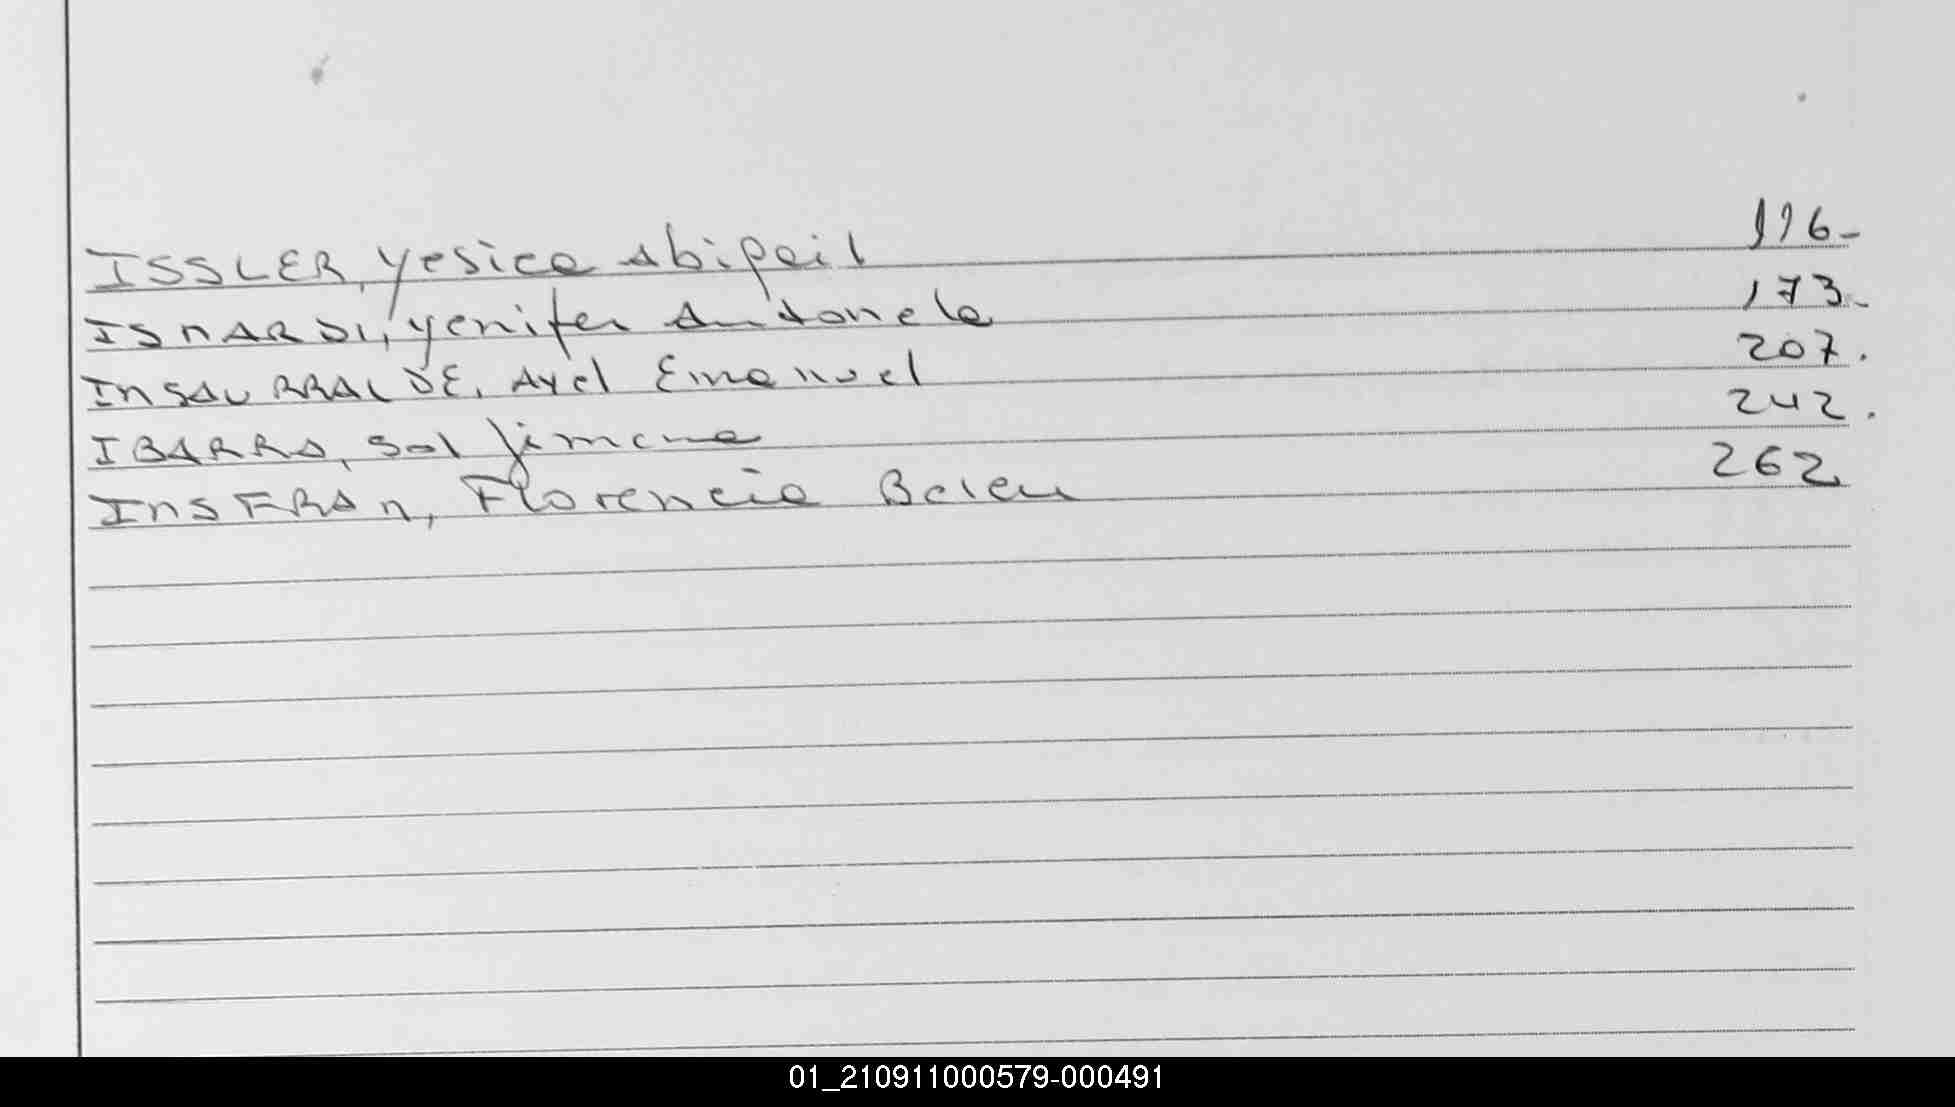 ISSLER, Yesica Abigail 116-
ISNARDI, Yenifer Antonela 173-
INSAURRALDE, Axel Emanuel 207.
IBARRA, Sol Jimena 242.
INSFRAN, Florencia Belen 262
01_210911000579-000491